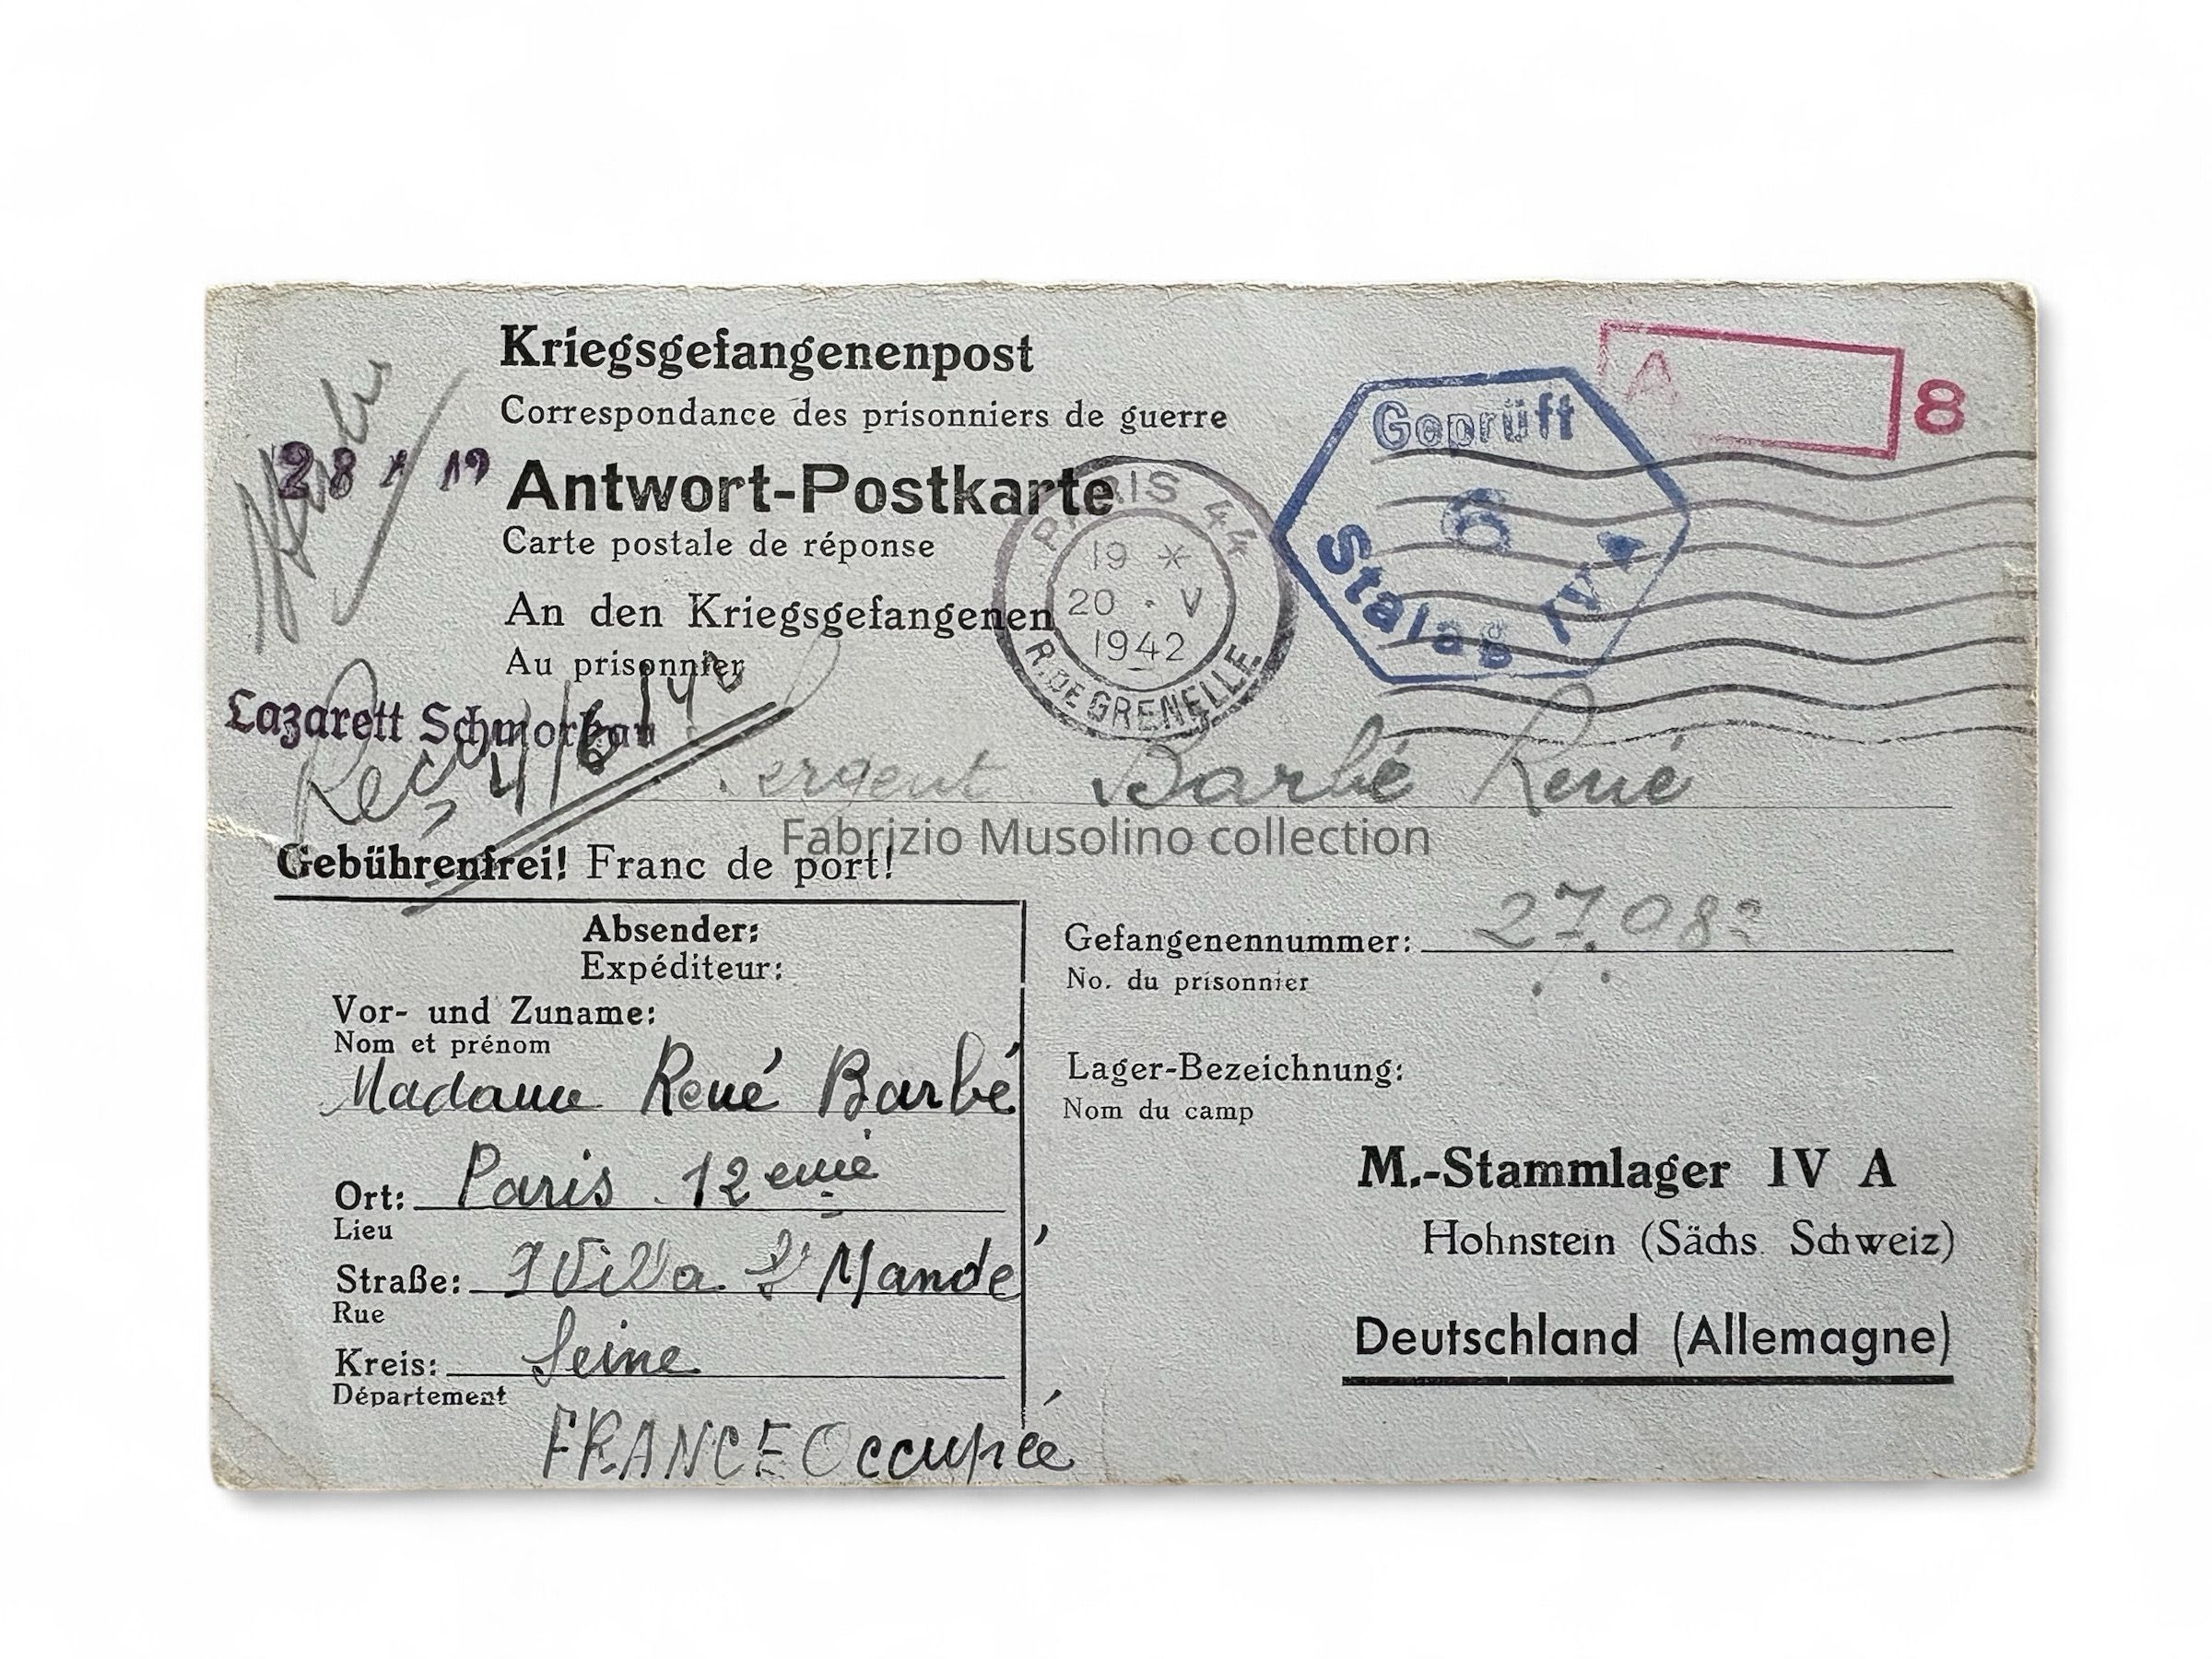 Kriegsgefangenenpost
Correspondance des prisonniers de guerre
A
8
Geprüft
6
Stalag IV A
28 19
Antwort-Postkarte
Carte postale de réponse
PARIS 44
19 *
20 · V
1942
R. DE GRENELLE
An den Kriegsgefangenen
Au prisonnier
Lazarett Schmorkau
Reçu 4/6/42
Sergent Barbé René
Fabrizio Musolino collection
Gebührenfrei! Franc de port!
Absender:
Expéditeur:
Gefangenennummer: 27.082
No. du prisonnier
Vor- und Zuname:
Nom et prénom
Madame René Barbé
Lager-Bezeichnung:
Nom du camp
M.-Stammlager IV A
Hohnstein (Sächs. Schweiz)
Deutschland (Allemagne)
Ort: Paris 12eme
Lieu
Straße: Villa St Mandé
Rue
Kreis: Seine
Département
FRANCE Occupée